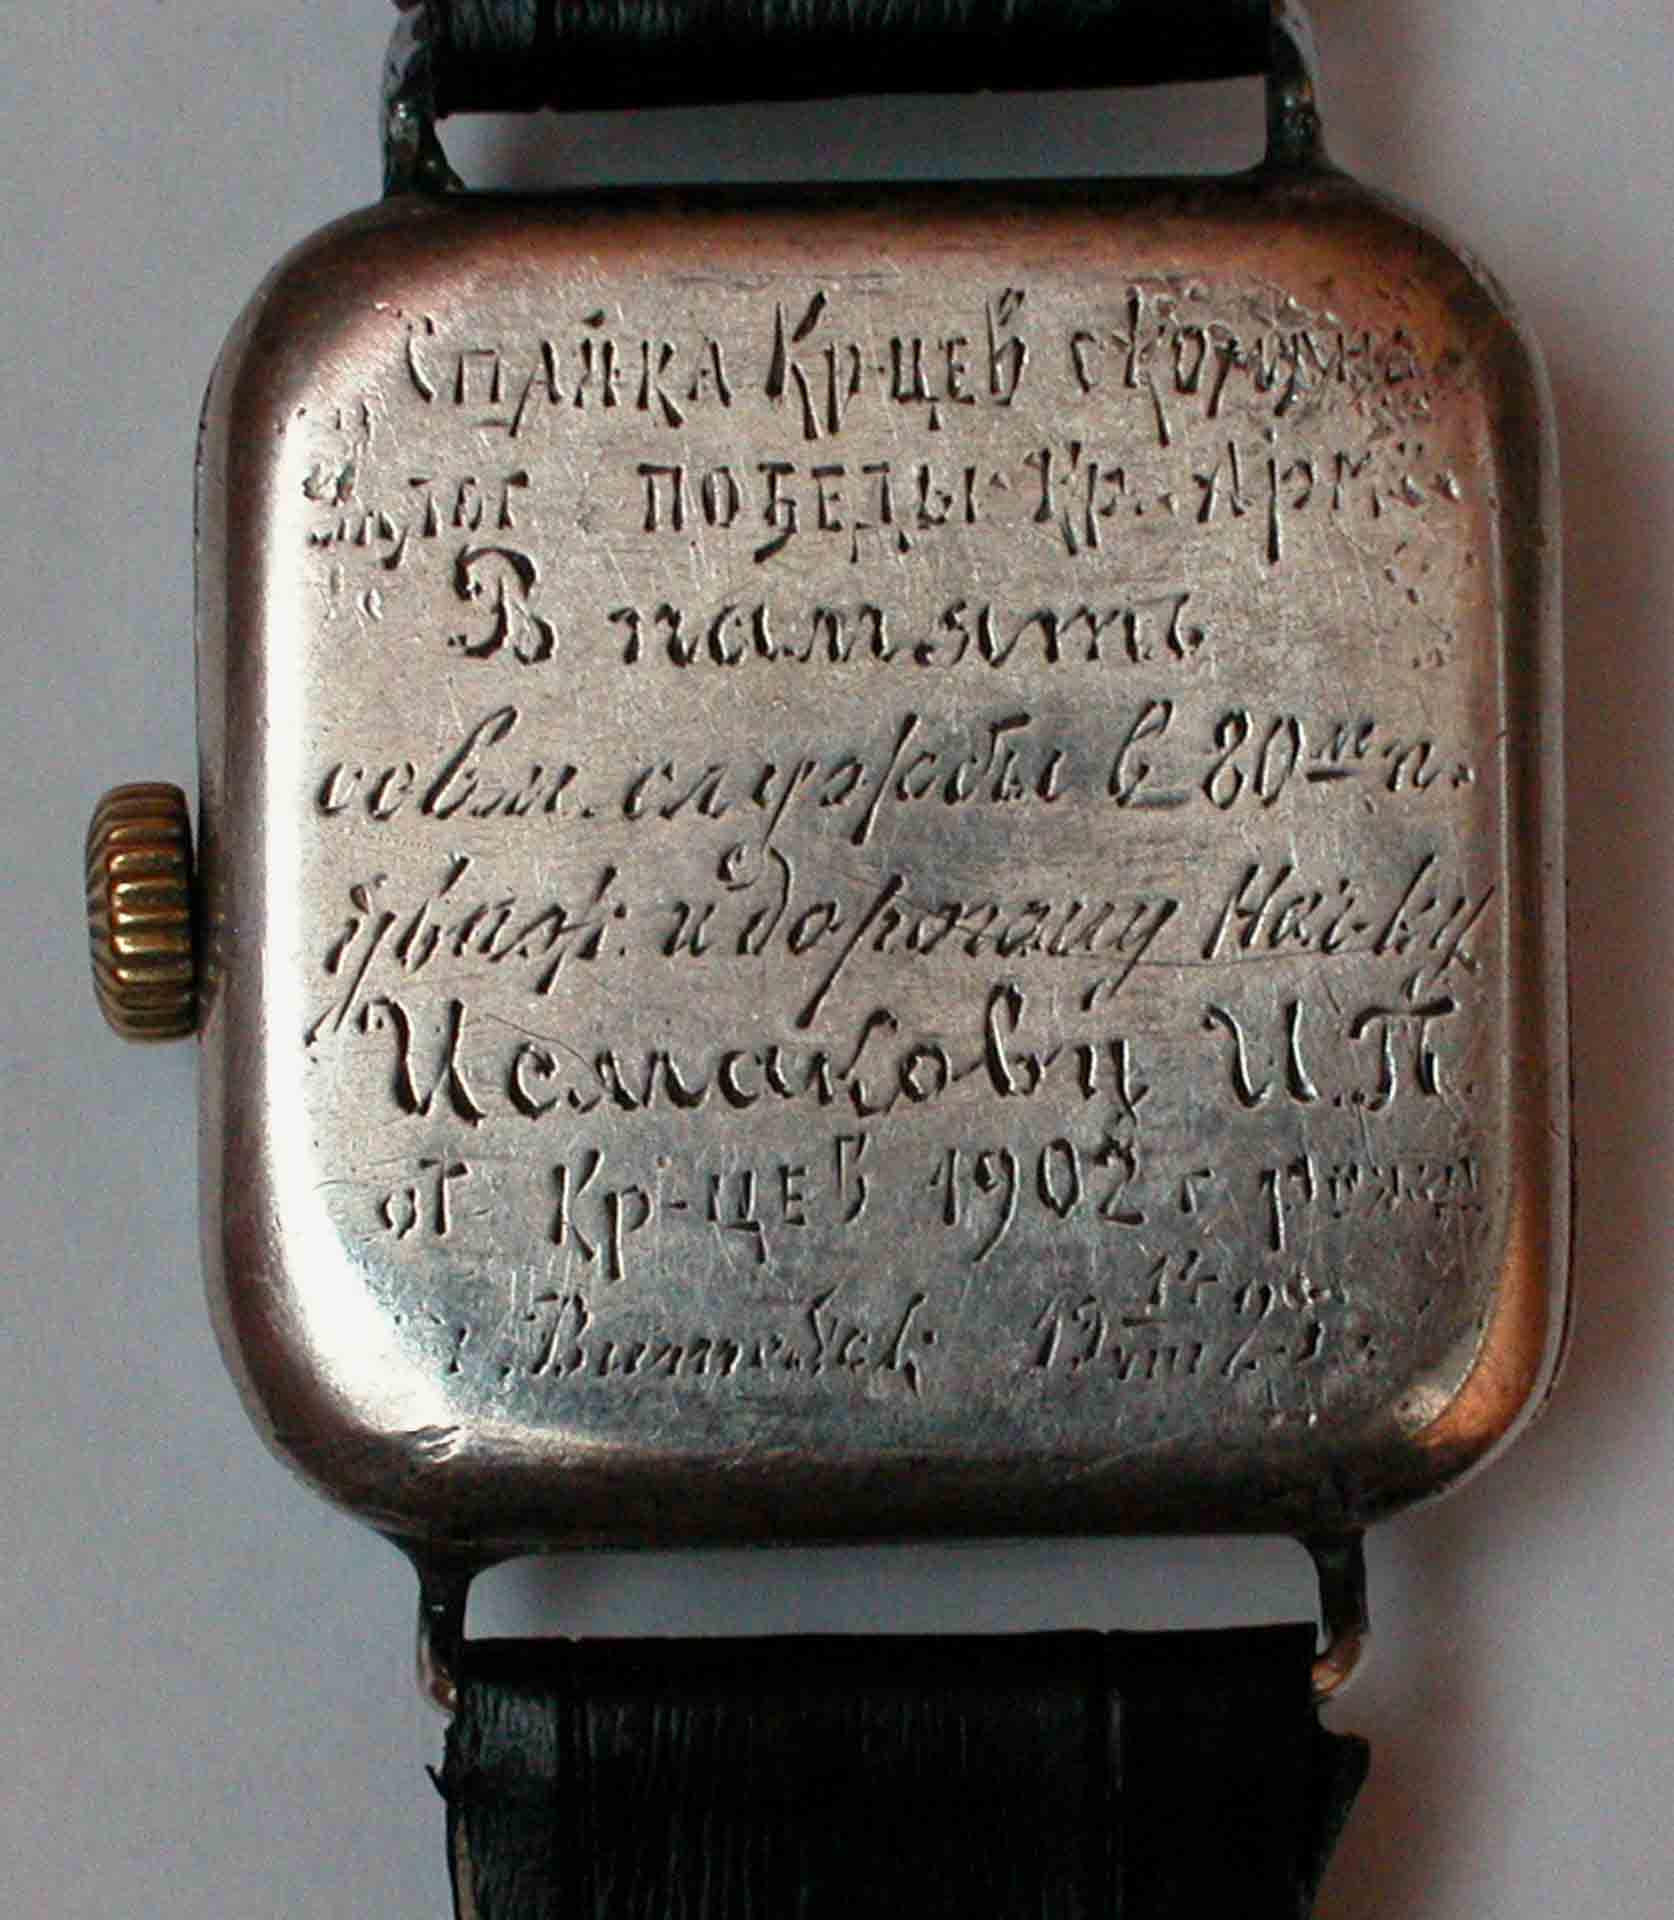 Спайка Кр-цев с Команд
залог победы Кр. Армии
В память
совм. службы в 80м п.
уваж: и дорогому Нач-ку
Исмакову И.П.
от Кр-цев 1902 г рожд
г. Витебск 19 14/VIII